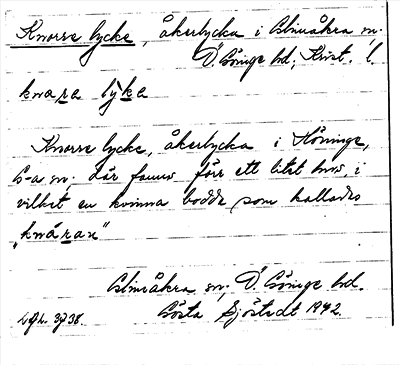 Knorre lycke, åkerlycka i Glimåkra sn.
Ö. Göinge hd, Krist. l.
knara lyka
Knorre lycke, åkerlycka i Höninge,
G-a sn; där fanns förr ett litet hus, i
vilket en kvinna bodde som kallades
„knåran"
Glimåkra sn, Ö. Göinge hd.
Gösta Sjöstedt 1942.